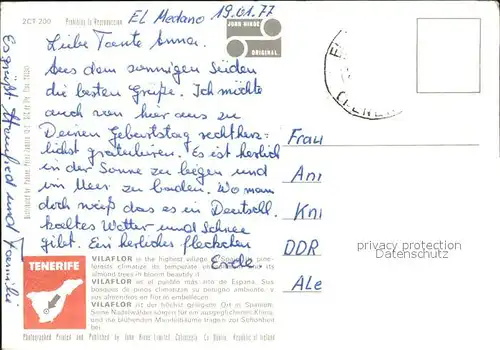 2CT 200
Prohibida la Reproduccion
El Medano 19.01.77
JOHN HINDE
ORIGINAL
Liebe Tante Anna.
Aus dem sonnigen Süden
die besten Grüße. Ich möchte
auch von hier aus zu
Deinem Geburtstag recht herz-
lichst gratulieren. Es ist herlich
in der Sonne zu liegen und
im Meer zu baden. Wo man
doch weiß das es in Deutschl.
kaltes Wetter und Schnee
gibt. Ein herliches fleckchen
Erde
Es grüßt Manfred und Familie
Frau
Ann
Kni
DDR
Ale
privacy protection
Datenschutz
TENERIFE
VILAFLOR is the highest village in Spain. Its pine-
forests climatize its temperate environment and its
almond trees in bloom beautify it.
VILAFLOR es el pueblo más alto de España. Sus
bosques de pinos climatizan su benigno ambiente y
sus almendros en flor lo embellecen.
VILAFLOR ist der höchst gelegene Ort in Spanien.
Seine Nadelwälder sorgen für ein ausgeglichenes Klima,
und die blühenden Mandelbäume tragen zur Schönheit
bei.
Photographed Printed and Published by John Hinde Limited, Cabinteely, Co Dublin, Republic of Ireland